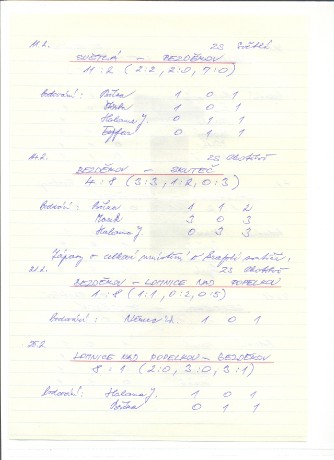 11.2. ZS Světlá
SVĚTLÁ – BEZDĚKOV
11 : 2 ( 2:2 , 2:0 , 7:0 )
Bodování : 1 0 1
1 0 1
Habama J. 0 1 1
0 1 1
14.2. ZS
BEZDĚKOV – SKUTEČ
4 : 8 ( 3:3 , 1:2 , 0:3 )
Bodování : 1 1 2
3 0 3
Habama J. 0 3 3
Zápasy o celkové umístění v :
21.2. ZS
BEZDĚKOV – LOMNICE NAD POPELKOU
1 : 8 ( 1:1 , 0:2 , 0:5 )
Bodování : 1 0 1
25.2.
LOMNICE NAD POPELKOU – BEZDĚKOV
8 : 1 ( 2:0 , 3:0 , 3:1 )
Bodování : Habama J. 1 0 1
0 1 1